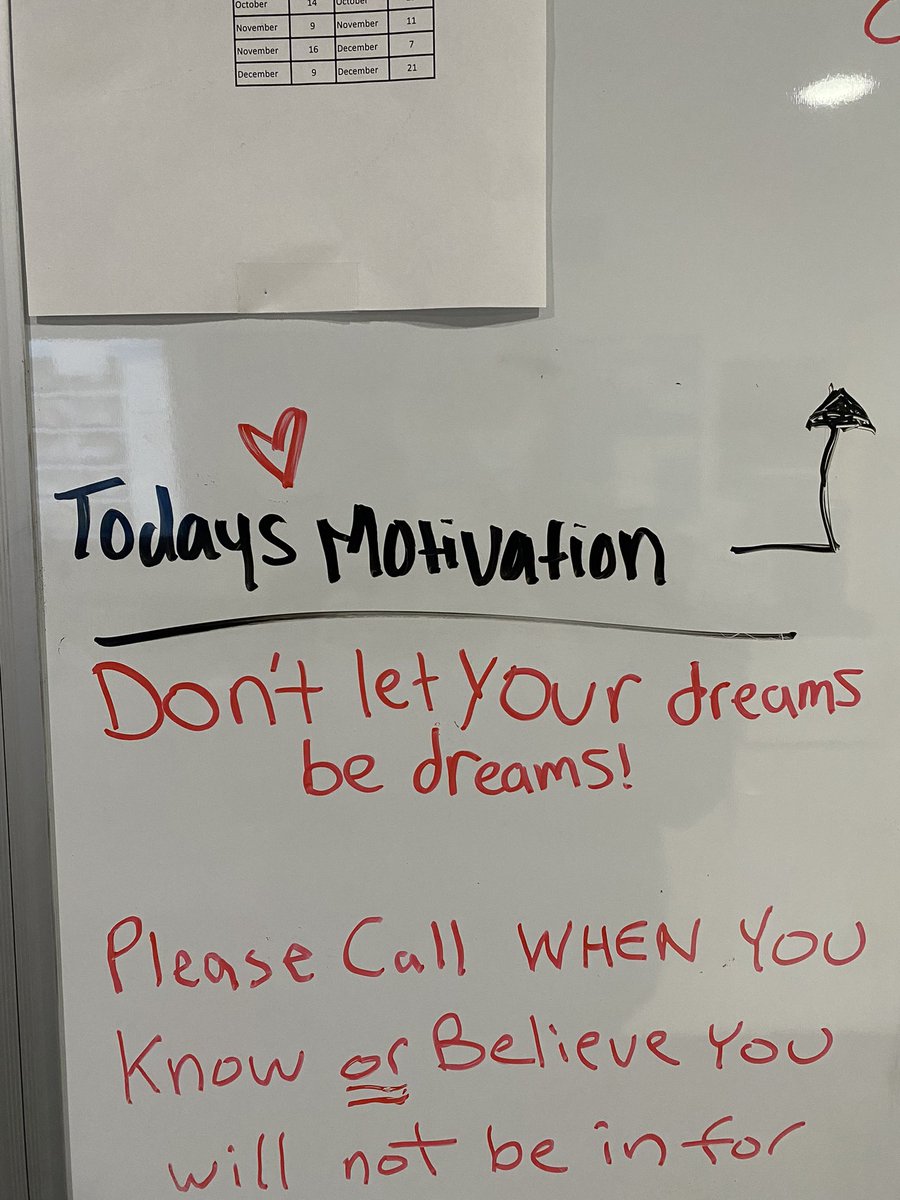 October 14 October
November 9 November 11
November 16 December 7
December 9 December 21
Todays Motivation
Don't let your dreams
be dreams!
Please Call WHEN YOU
Know or Believe You
will not be in for